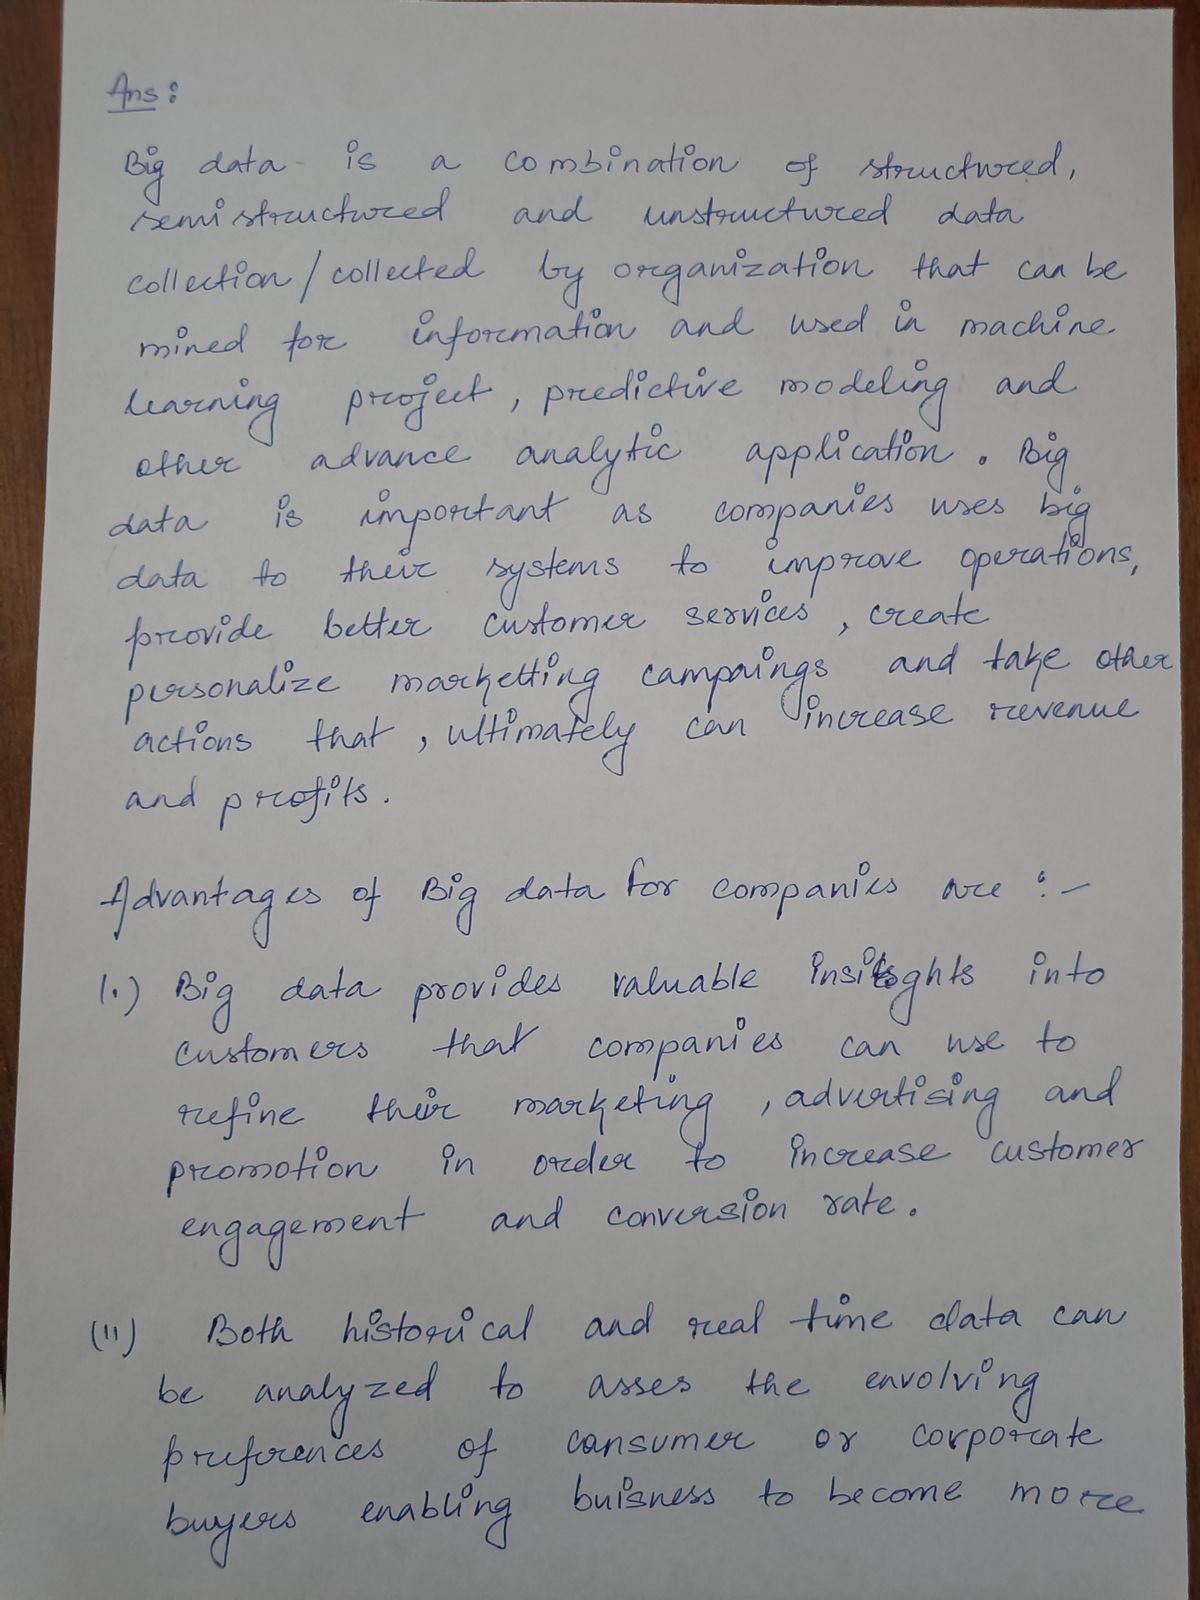 Ans:
Big data is a combination of structured,
semistructured and unstructured data
collection/collected by organization that can be
mined for information and used in machine
learning project, predictive modeling and
other advance analytic application. Big
data is important as companies uses big
data to their systems to improve operations,
provide better customer services, create
personalize marketting campaings and take other
actions that, ultimately can increase revenue
and profits.
Advantages of Big data for companies are :-
(i.) Big data provides valuable insights into
customers that companies can use to
refine their marketing, advertising and
promotion in order to increase customer
engagement and conversion rate.
(11) Both historical and real time data can
be analyzed to asses the envolving
preferences of consumer or corporate
buyers enabling buisness to become more